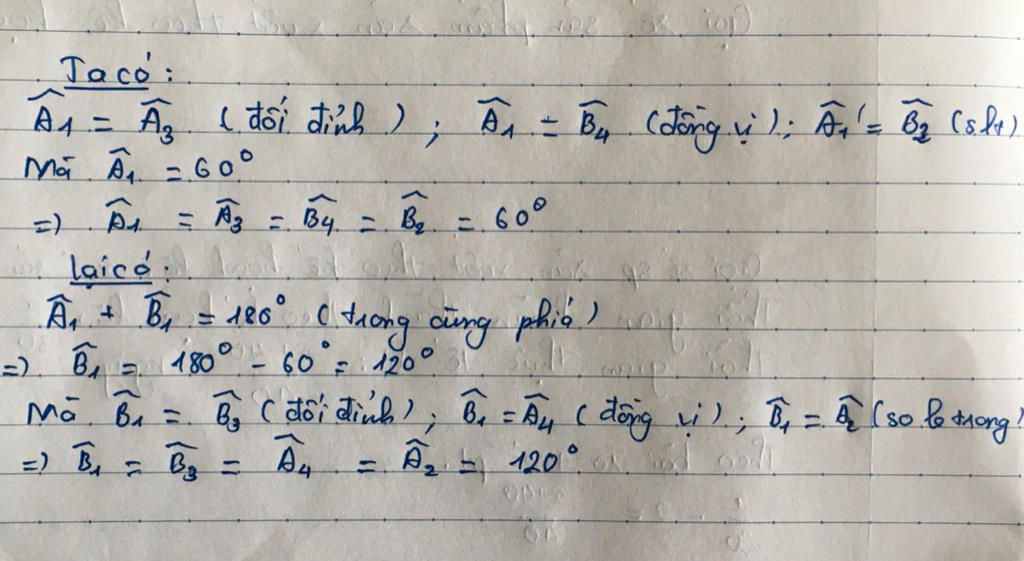 Ta có:
Â1 = Â3 (đối đỉnh); Â1 = B̂4 (đồng vị); Â1 = B̂2 (slt)
Mà Â1 = 60°
=) Â1 = Â3 = B̂4 = B̂2 = 60°
Lại có:
Â1 + B̂1 = 180° (trong cùng phía)
=) B̂1 = 180° - 60° = 120°
Mà B̂1 = B̂3 (đối đỉnh); B̂1 = Â4 (đồng vị); B̂1 = Â2 (so le trong)
=) B̂1 = B̂3 = Â4 = Â2 = 120°